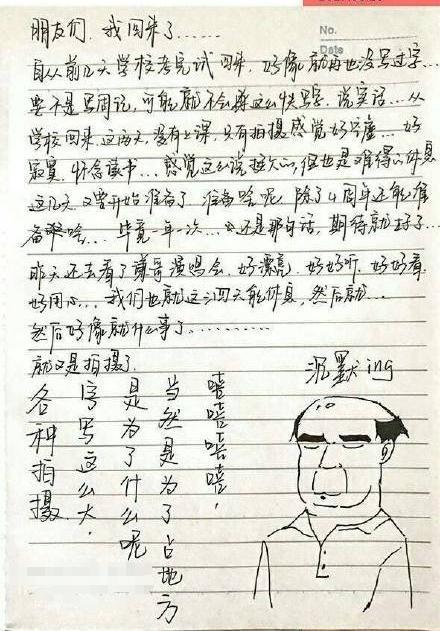 朋友们，我回来了……
No.
Date
自从前几天学校考完试回来，好像就再也没写过字…
要不是写周记，可能就不会有这么快写，说实话…从
学校回来，这两天，没有上课，只有拍摄感觉好空虚…好
寂寞，怀念读书…感觉这么说挺欠的，但也是难得的休息
这几天，又要开始准备了，准备啥呢，除了4周年还能准
备啥…毕竟一年一次…还是那句话，期待就好了…
昨天还去看了哥演唱会，好漂亮，好好听，好好看
好用心…我们也就这三四天能休息，然后就…
然后好像就什么事了………
就又是拍摄了。
沉默ing
嘻嘻嘻嘻，
当然是为了占地方
是为了什么呢
字写这么大，
各种拍摄